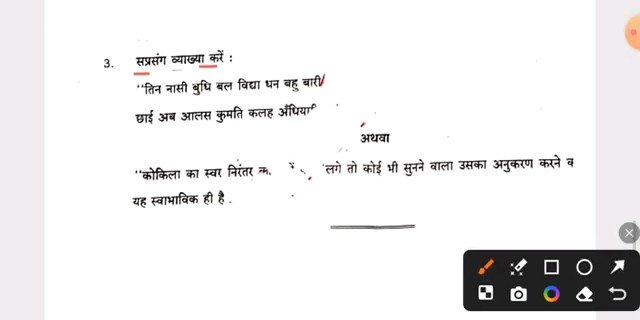 3. सप्रसंग व्याख्या करें :
"तिन नासी बुधि बल विद्या धन बहु बारी
छाई अब आलस कुमति कलह अँधियारी
अथवा
"कोकिला का स्वर निरंतर लगे तो कोई भी सुनने वाला उसका अनुकरण करने
यह स्वाभाविक ही है .